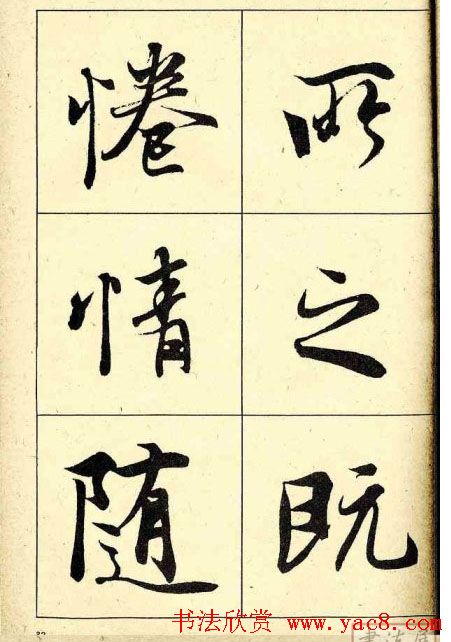 所之既
惓情随
书法欣赏 www.yac8.com